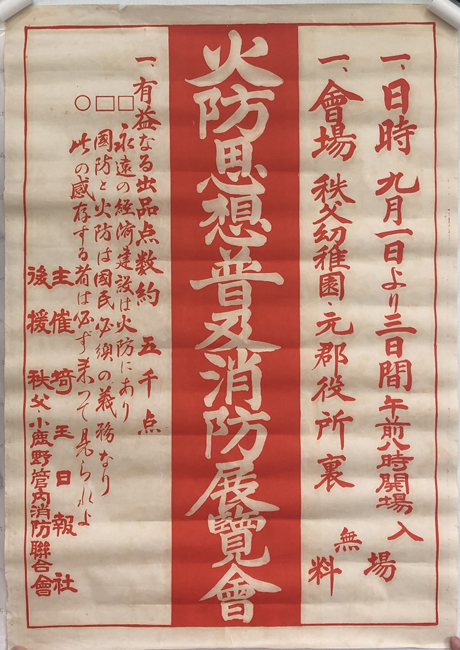 一、日時 九月一日より三日間 午前八時開場
入場無料
一、會場 秩父幼稚園・元郡役所裏
火防思想普及消防展覽會
一、有益なる出品点数約 五千点
□永遠の経済建設は火防にあり
□國防と火防は國民必須の義務なり
○此の感存する者は必ず来つて見られよ
主催 埼玉日報社
後援 秩父・小鹿野管内消防聯合會